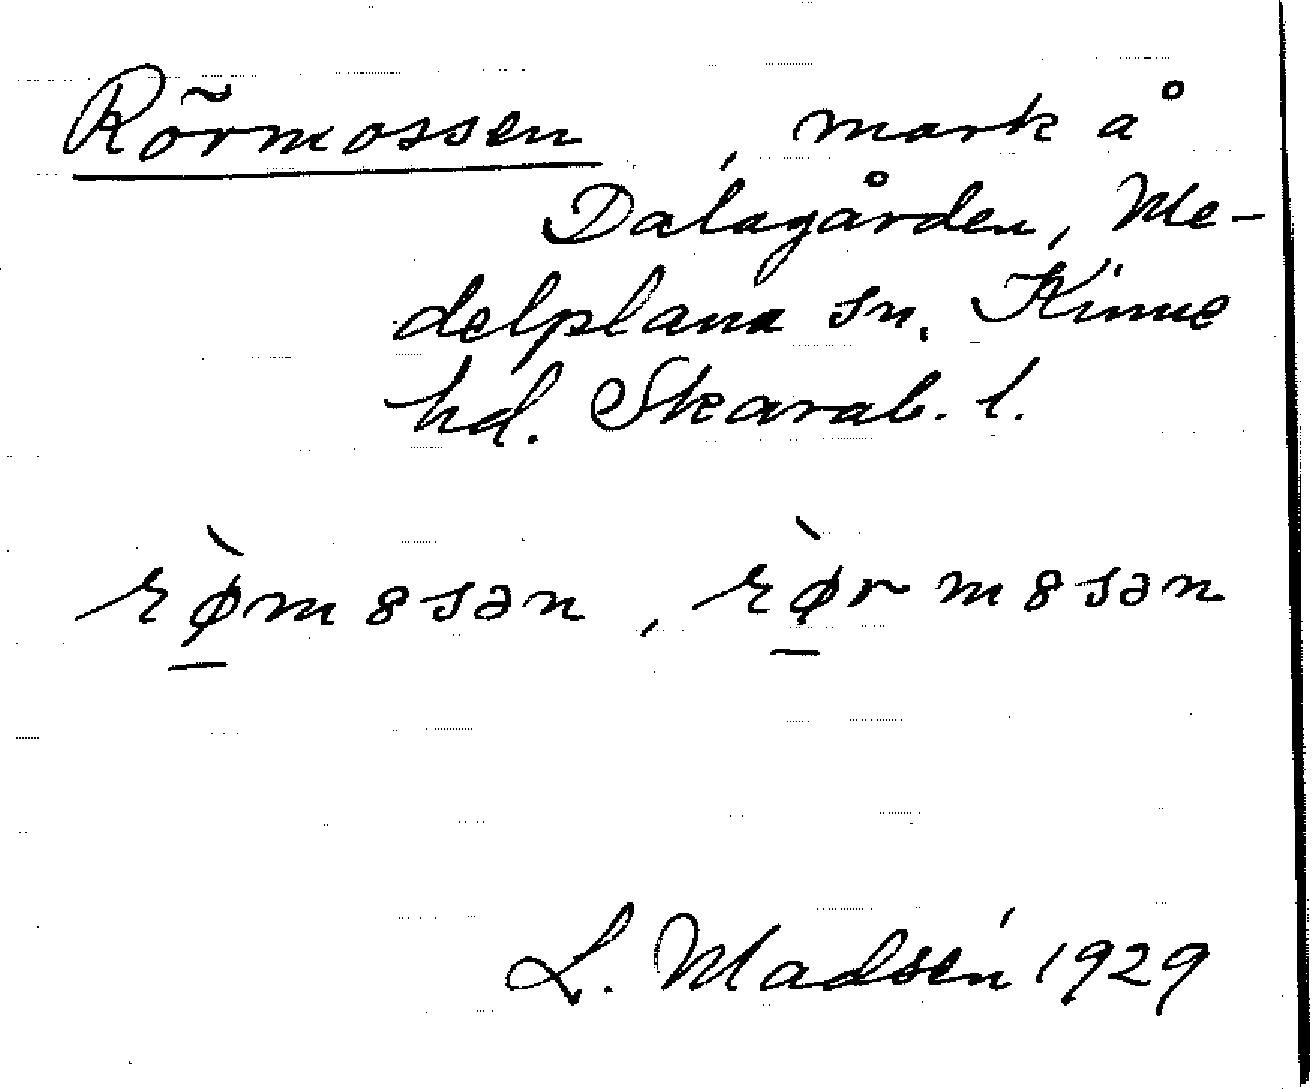 Rörmossen, mark å
Dalagården, Me-
delplana sn. Kinne
hd. Skarab. l.
rø̀mȣsən, rø̀rmȣsən
L. Madsén 1929